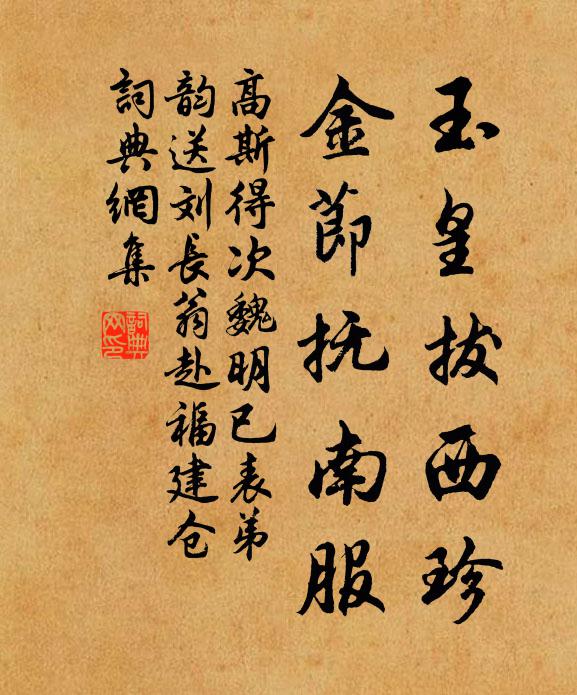 玉皇拔西珍
金節抚南服
高斯得次魏明已表弟
韵送刘長翁赴福建仓
詞典網集
詞典
网印